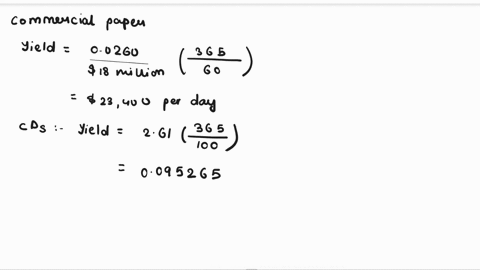 commercial paper
Yield = 0.0260 / $18 million (365 / 60)
= $23,400 per day
CDs :- Yield = 2.61 (365 / 100)
= 0.095265